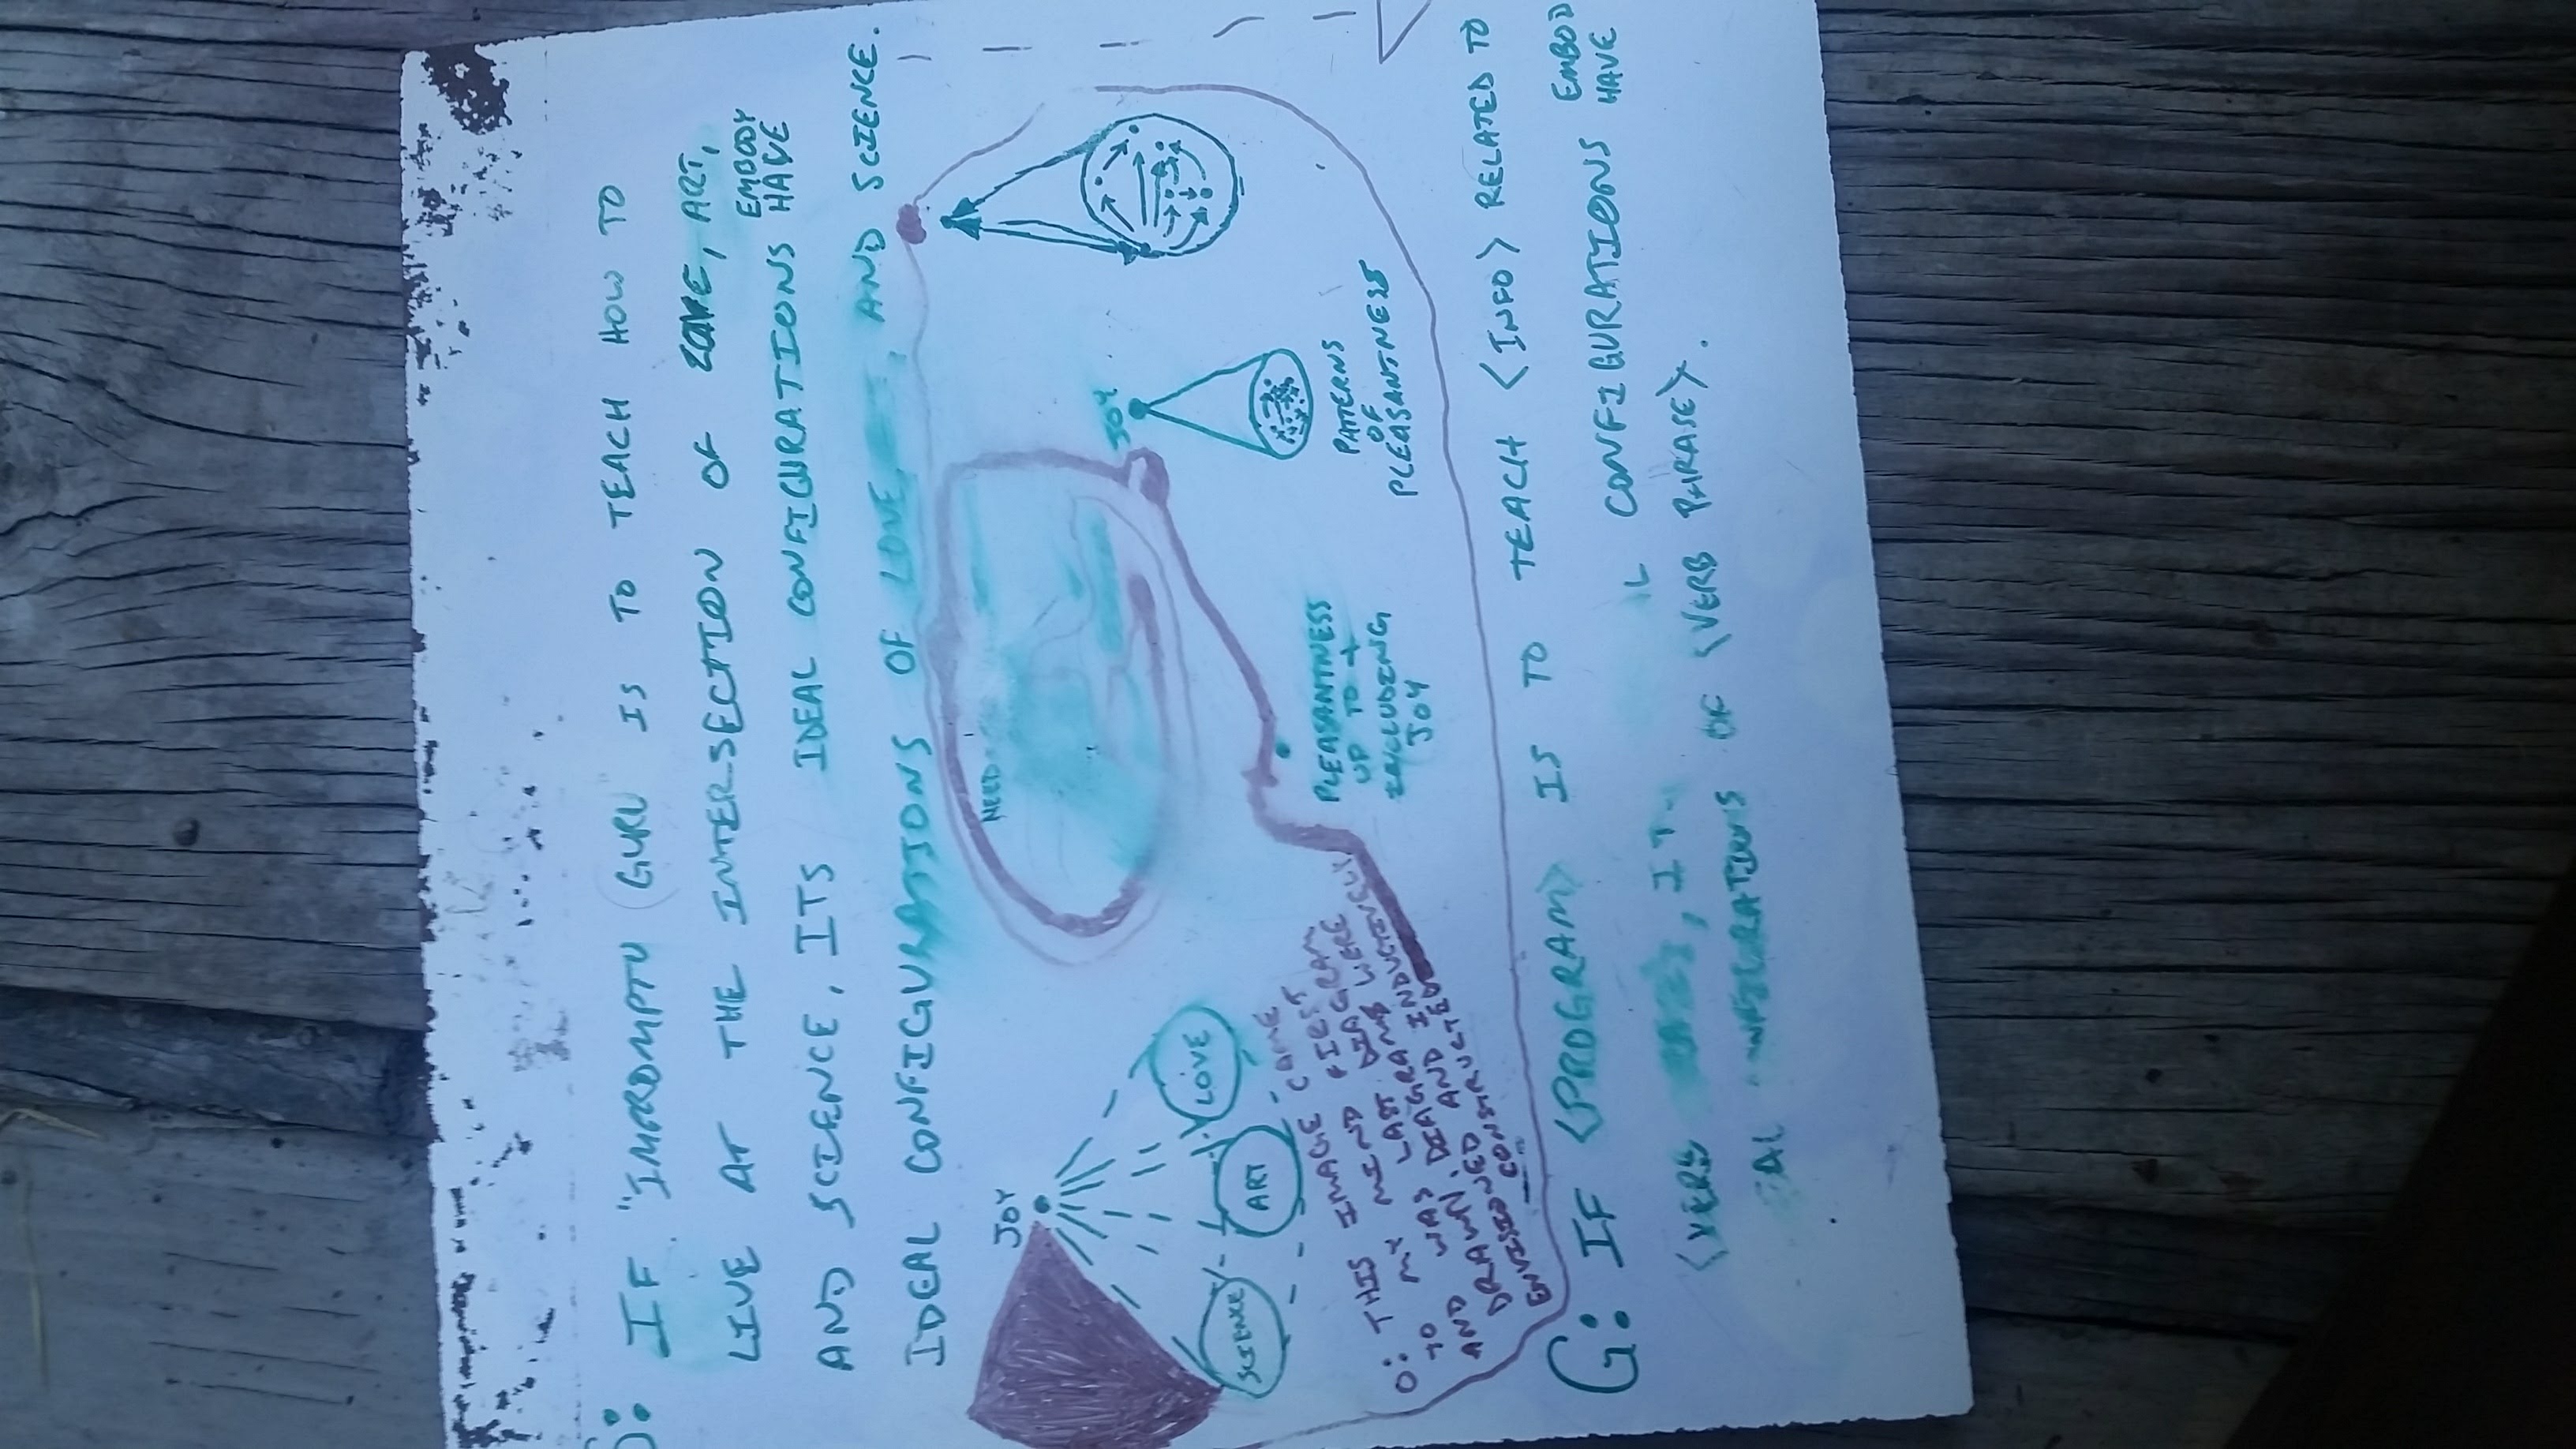 S: IF "IMPROMPTU GURU IS TO TEACH HOW TO
LIVE AT THE INTERSECTION OF LOVE, ART,
EMBODY
AND SCIENCE, ITS IDEAL CONFIGURATIONS HAVE
IDEAL CONFIGURATIONS OF LOVE, , AND SCIENCE.
JOY
SCIENCE
ART
LOVE
NEED
O: THIS IMAGE CAME
TO MY MIND FIRST
AND WAS LAST DIAGRAM
DRAWN. DIAGRAMS WERE
ENVISIONED AND INDUCTIVELY
CONSTRUCTED
PLEASANTNESS
UP TO +
INCLUDING
JOY
JOY
PATTERNS
OF
PLEASANTNESS
G: IF <PROGRAM> IS TO TEACH <INFO> RELATED TO
EMBOD
<VERB , IT L CONFIGURATIONS HAVE
AL NFIGURATIONS OF <VERB PHRASE>.